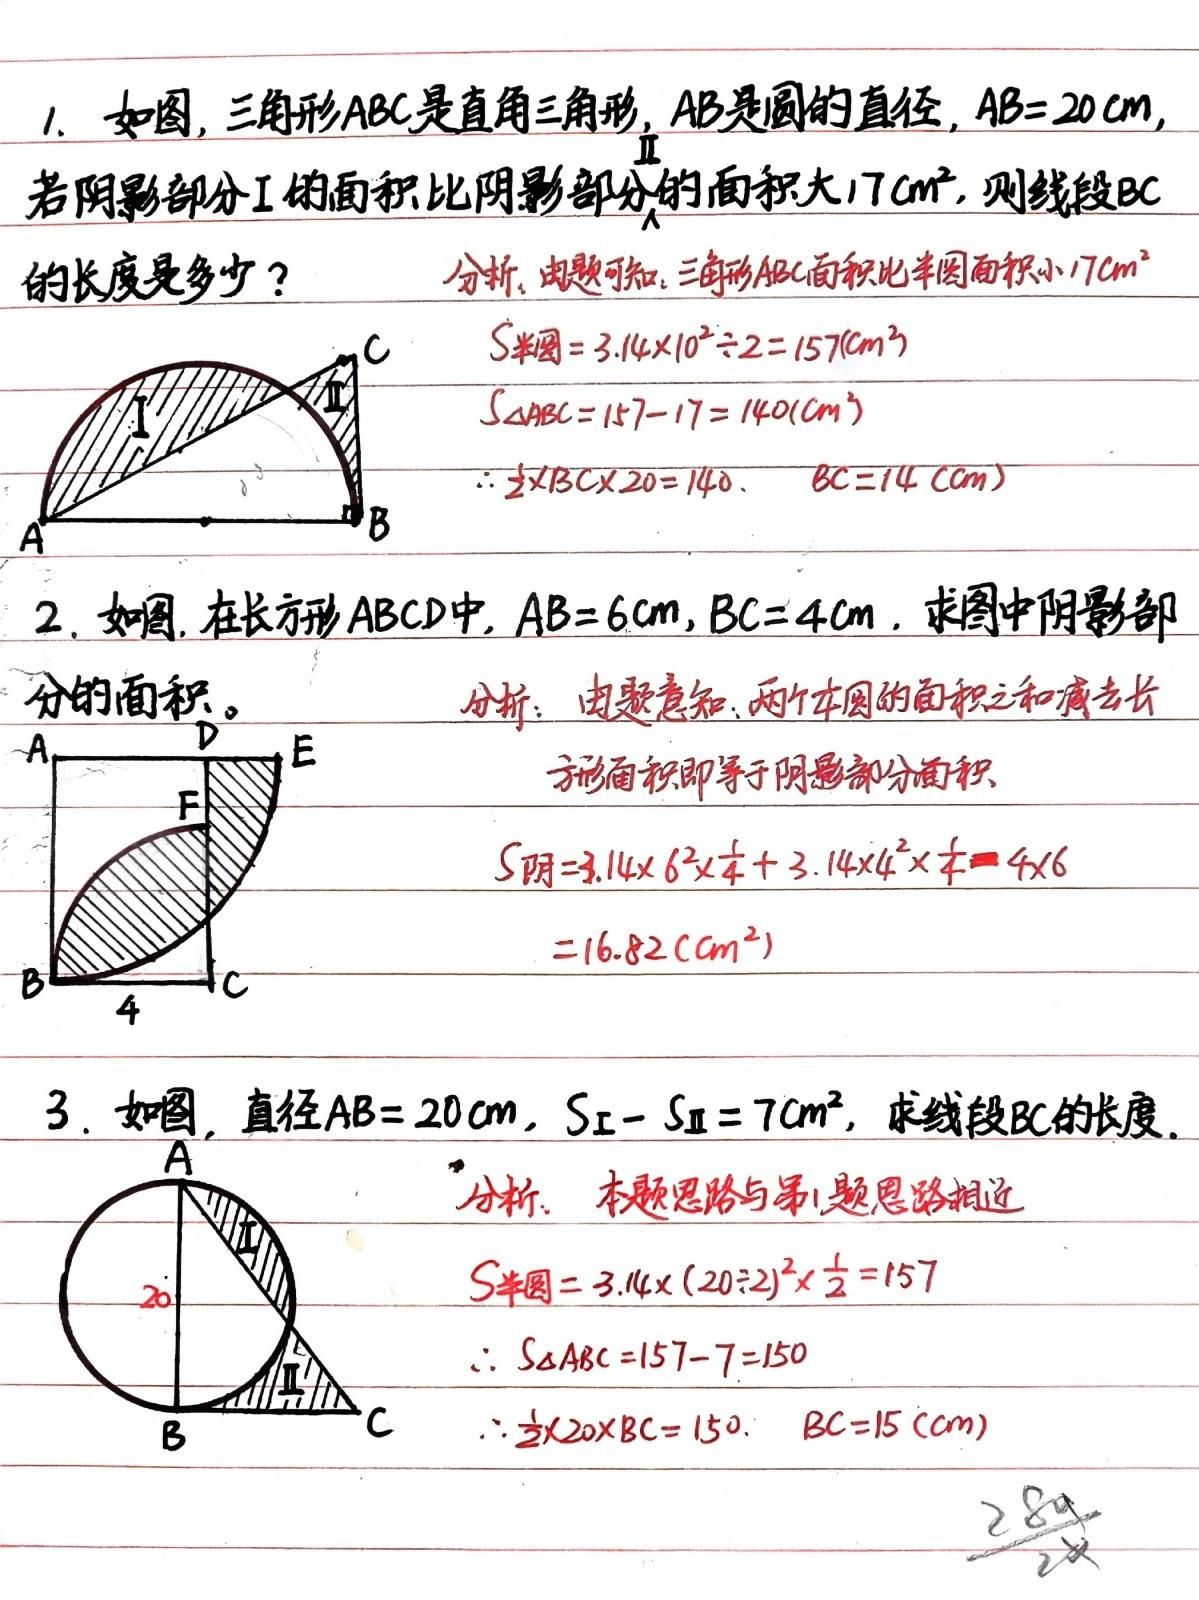 1. 如图,三角形ABC是直角三角形,AB是圆的直径,AB=20cm,
若阴影部分I的面积比阴影部分II的面积大17cm²,则线段BC
的长度是多少?
分析:由题可知:三角形ABC面积比半圆面积小17cm²
S半圆=3.14×10²÷2=157(cm²)
S△ABC=157-17=140(cm²)
∴ ½×BC×20=140. BC=14(cm)
C
I
II
A
B
2. 如图,在长方形ABCD中,AB=6cm,BC=4cm.求图中阴影部
分的面积。
分析: 由题意知:两个¼圆的面积之和减去长
方形面积即等于阴影部分面积
S阴=3.14×6²×¼+3.14×4²×¼-4×6
=16.82(cm²)
A D E
F
B C
4
3. 如图,直径AB=20cm,SI-SII=7cm²,求线段BC的长度.
分析: 本题思路与第1题思路相近
S半圆=3.14×(20÷2)²×½=157
∴ S△ABC=157-7=150
∴ ½×20×BC=150. BC=15(cm)
A
I
20
II
B
C